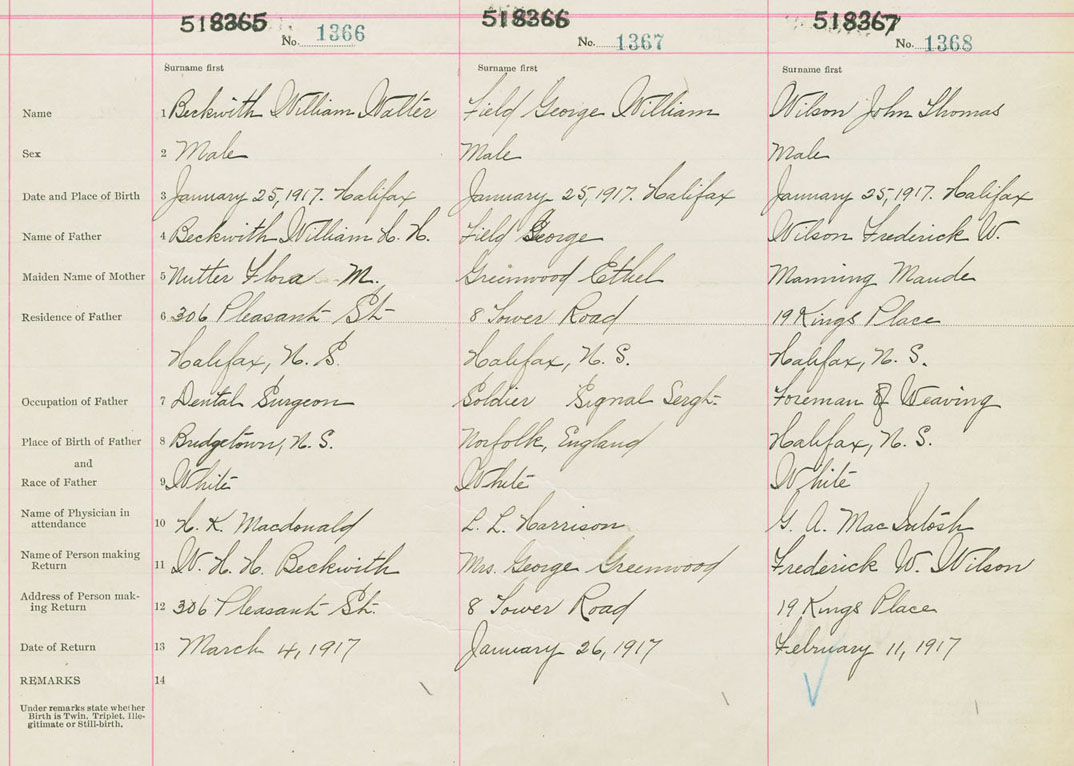 518365 518366 518367
No. 1366 No. 1367 No. 1368
Surname first Surname first Surname first
Name 1 Beckwith William Walter Field George William Wilson John Thomas
Sex 2 Male Male Male
Date and Place of Birth 3 January 25, 1917. Halifax January 25, 1917. Halifax January 25, 1917. Halifax
Name of Father 4 Beckwith William H. H. Field George Wilson Frederick W.
Maiden Name of Mother 5 Nutter Flora M. Greenwood Ethel Manning Maude
Residence of Father 6 306 Pleasant St. 8 Tower Road 19 Kings Place
Halifax, N. S. Halifax, N. S. Halifax, N. S.
Occupation of Father 7 Dental Surgeon Soldier Signal Sergt. Foreman of Weaving
Place of Birth of Father 8 Bridgetown, N. S. Norfolk, England Halifax, N. S.
and
Race of Father 9 White White White
Name of Physician in
attendance 10 H. K. Macdonald L. L. Harrison G. A. MacIntosh
Name of Person making
Return 11 W. H. H. Beckwith Mrs. George Greenwood Frederick W. Wilson
Address of Person mak-
ing Return 12 306 Pleasant St. 8 Tower Road 19 Kings Place
Date of Return 13 March 4, 1917 January 26, 1917 February 11, 1917
REMARKS 14
Under remarks state whether
Birth is Twin, Triplet, Ille-
gitimate or Still-birth.